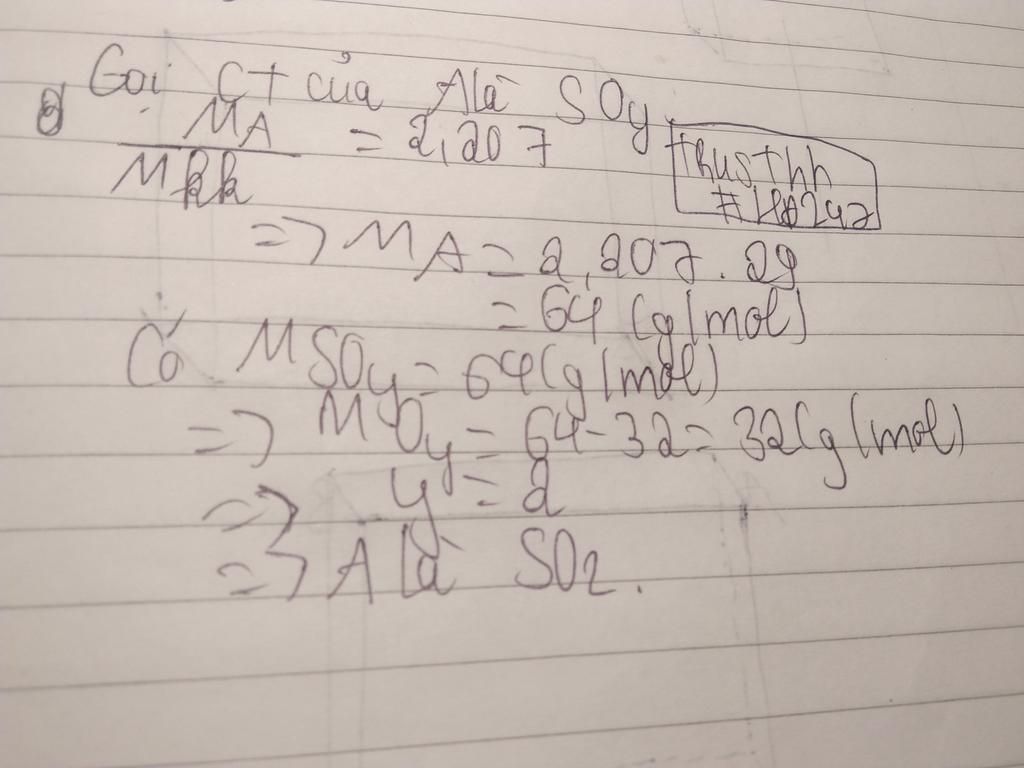 Gọi CT của A là SOy
MA / Mkk = 2,207
=> MA = 2,207 . 29
= 64 (g/mol)
Có MSOy = 64 (g/mol)
=> MOy = 64 - 32 = 32 (g/mol)
=> y = 2
=> A là SO2.